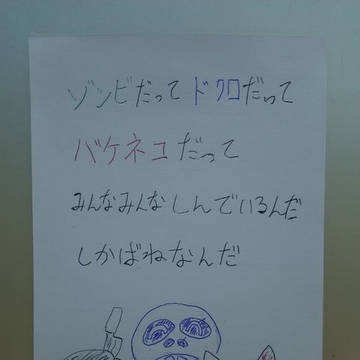 ゾンビだって ドクロだって
バケネコだって
みんなみんなしんでいるんだ
しかばねなんだ